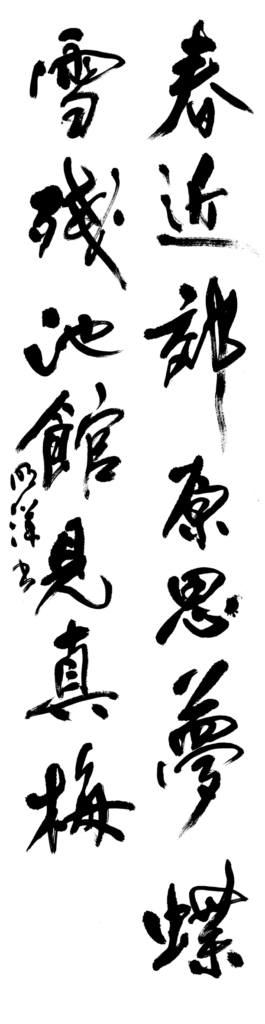 春近郊原思夢蝶
雪殘池館見真梅
明洋書